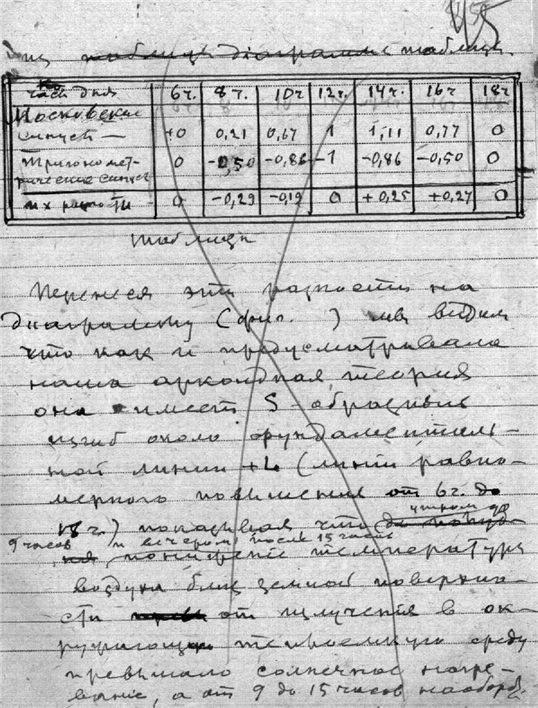 из таблицы диаграммы таблицы.
часы дня 6ч. 8ч. 10ч 12ч. 14ч. 16ч. 18ч
Московские
синусы — +0 0,21 0,67 1 1,11 0,77 0
тригономет-
рические синусы 0 -0,50 -0,86 -1 -0,86 -0,50 0
их разности 0 -0,29 -0,19 0 +0,25 +0,27 0
таблица
Перенеся эти разности на
диаграмму (фиг. ) мы видим
что как и предусматривала
наша аркоидная теория
она имеет S-образный
изгиб около фундаменталь-
ной линии +L (линии равно-
мерного повышения от 6ч. до
утром до
18ч.) показывая что до
9 часов и вечером после 15 часов
понижение температуры
воздуха близ земной поверхно-
сти от излучения в ок-
ружающую среду
превышало солнечное нагре-
вание, а от 9 до 15 часов наоборот